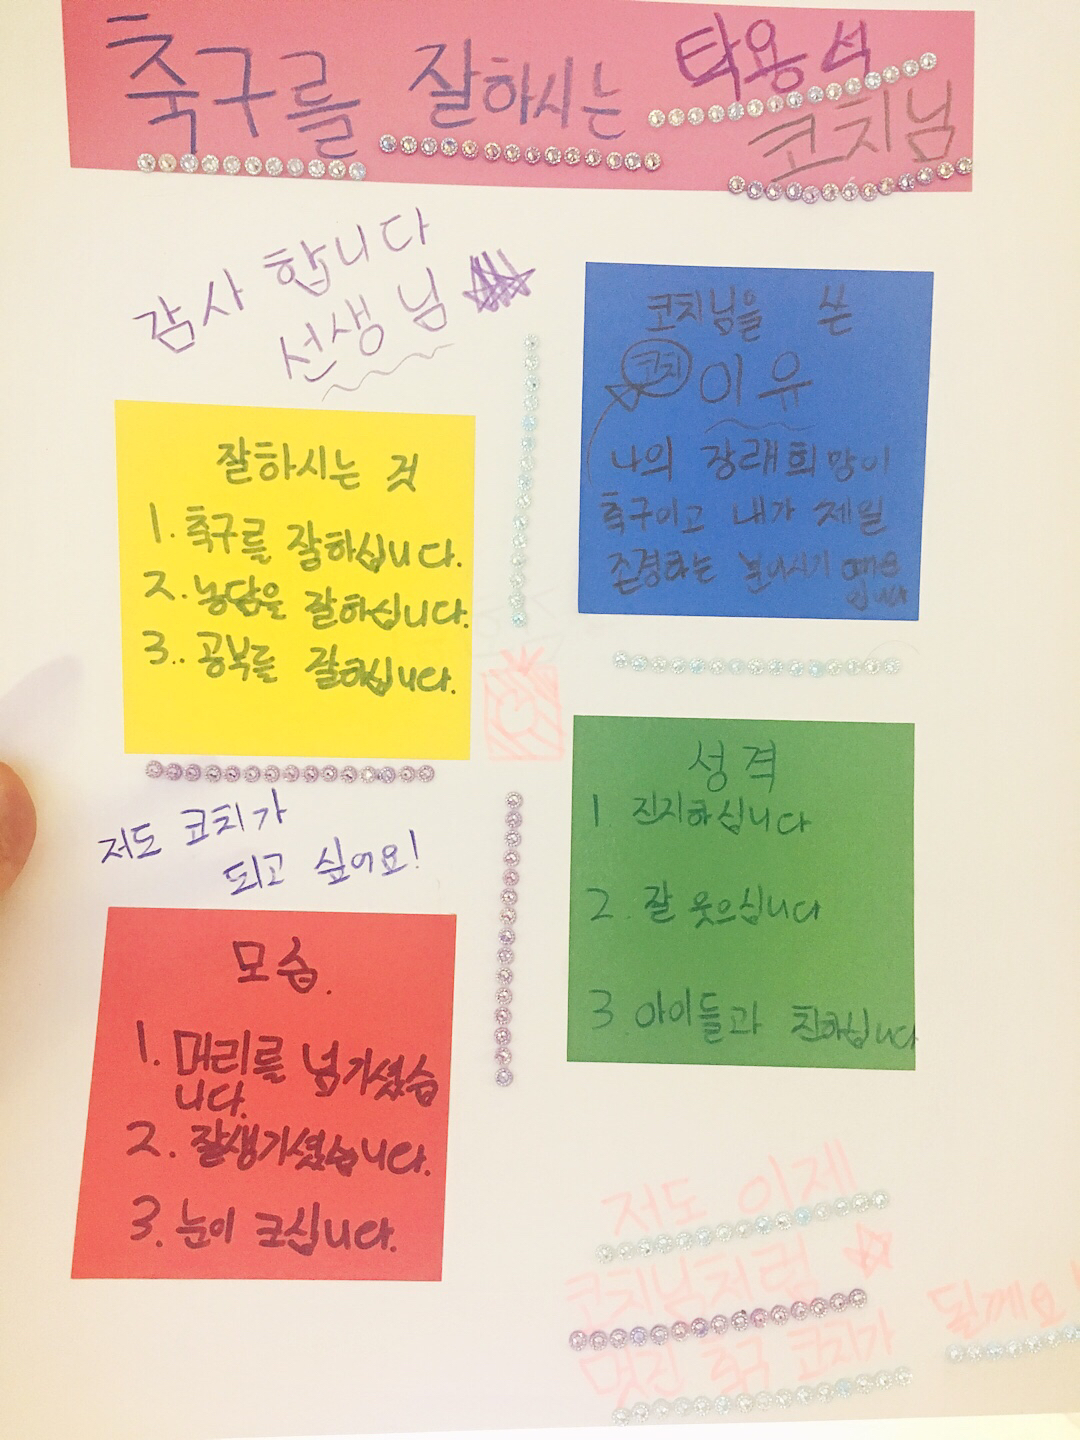 축구를 잘하시는 탁용석
코치님
감사 합니다
선생님
잘하시는 것
1. 축구를 잘하십니다.
2. 농담을 잘하십니다.
3.. 공복를 잘하십니다.
저도 코치가
되고 싶어요!
모습.
1. 머리를 넘기셨습
니다.
2. 잘생기셨습니다.
3. 눈이 크십니다.
코치님을 쓴
코치 이유
나의 장래희망이
축구이고 내가 제일
존경하는 분이시기 때문
입니다
성격
1 진지하십니다
2. 잘 웃으십니다
3 아이들과 친하십니다
저도 이제
코치님처럼
멋진 축구 코치가 될께요!